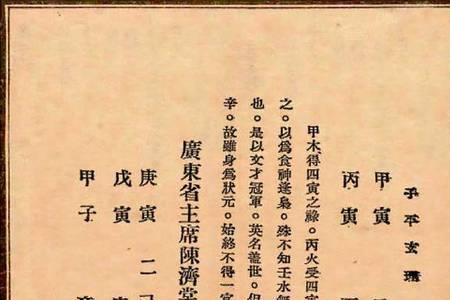 子平玄理
甲寅
丙寅
甲木得四寅之祿。丙火受四寅
之。以為食神逢梟。殊不知壬水無
也。是以文才冠軍。英名蓋世。但
辛。故雖身為狀元。始終不得一官
廣東省主席陳濟棠
庚寅 二
戊寅
甲子